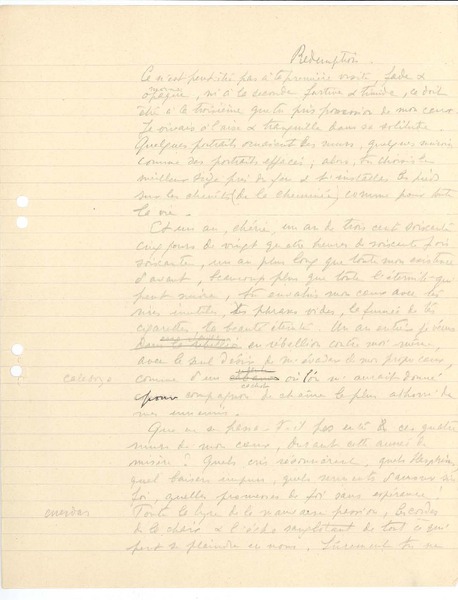 Rédemption.
Ce n'est peut-être pas à la première visite, fade &
morne
opaque, ni à la seconde furtive & timide, ce doit
être à la troisième que tu pris possession de mon cœur.
Je vivais à l'aise & tranquille dans sa solitude.
Quelques portraits ornaient les murs, quelques
comme des portraits effacés; alors, tu choisis le
meilleur siège près du feu & t'installas les pieds
sur les chenets (de la cheminée) comme pour toute
la vie.
Et un an, chérie, un an de trois cent soixante
cinq jours de vingt quatre heures de soixante fois
soixante, un an plus long que toute mon existence
d'avant, beaucoup plus que toute l'éternité qui
peut suivre, tu envahis mon cœur avec tes
rires inutiles, tes phrases vides, la fumée de tes
cigarettes, ta beauté éteinte. Un an entier je vécus
en rébellion contre moi même,
avec le seul désir de m'évader de mon propre cœur,
calabozo
comme d'un
cachot
où l'on m'aurait donné
pour compagnon de chaîne le plus abhorré de
mes ennemis.
Que ne se passa-t-il pas entre les quatre
murs de mon cœur, durant cette année de
misère? Quels cris
quels baisers impurs, quels serments d'amour sans
foi, quelles promesses de foi sans espérance!
cuerdas
Toute la lyre de la mauvaise passion, les cordes
de la chair & l'écho sanglotant de tout ce qui
peut se plaindre en nous. Lentement tu me